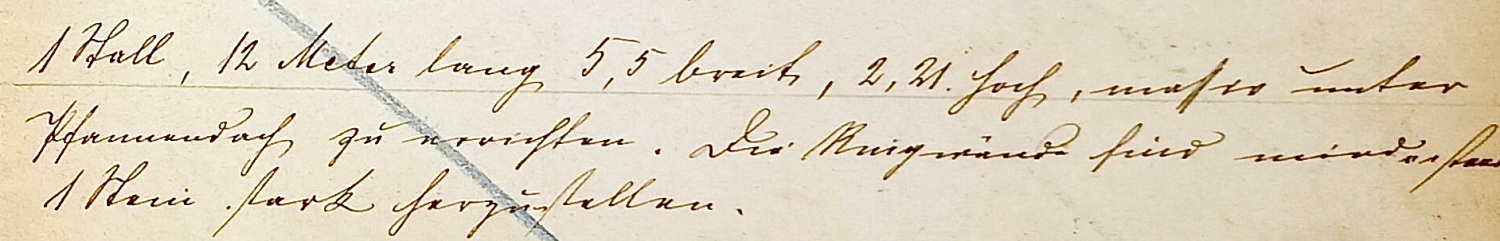 1 Stall, 12 Meter lang 5,5 breit, 2,21. hoch, massiv unter
Pfannendach zu errichten. Die Ringwände sind mindestens
1 Stein stark herzustellen.